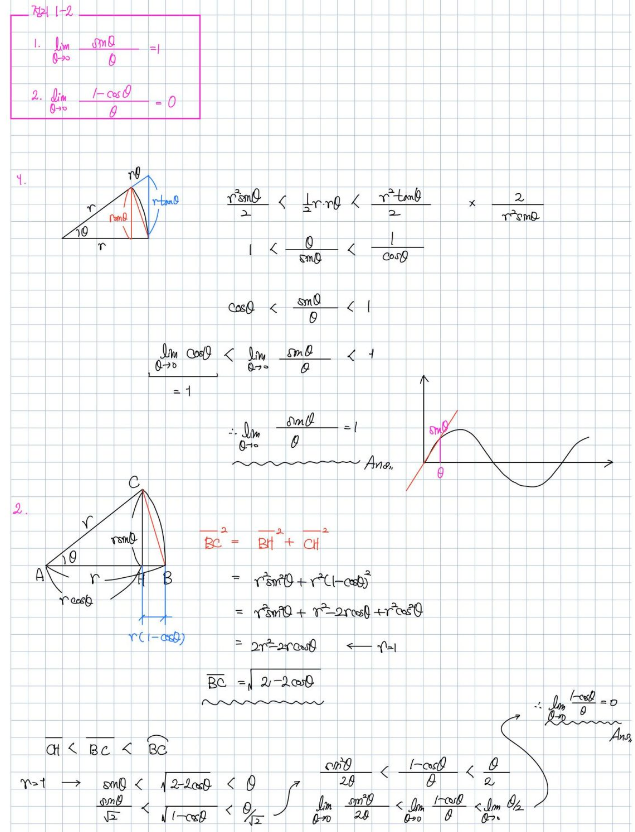 정리 1-2
1. lim θ→0 sinθ/θ = 1
2. lim θ→0 (1-cosθ)/θ = 0
1.
rθ
r
rsinθ
rtanθ
θ
r
r²sinθ/2 < 1/2 r·rθ < r²tanθ/2 × 2/r²sinθ
1 < θ/sinθ < 1/cosθ
cosθ < sinθ/θ < 1
lim θ→0 cosθ < lim θ→0 sinθ/θ < 1
= 1
∴ lim θ→0 sinθ/θ = 1
Ans.
sinθ
θ
2.
C
r
rsinθ
θ
A r H B
rcosθ
r(1-cosθ)
BC² = BH² + CH²
= r²sin²θ + r²(1-cosθ)²
= r²sin²θ + r²-2rcosθ + r²cos²θ
= 2r²-2rcosθ ← r=1
BC = √2-2cosθ
CH < BC < BC
r=1 → sinθ < √2-2cosθ < θ
sinθ/√2 < √1-cosθ < θ/√2
sin²θ/2θ < (1-cosθ)/θ < θ/2
lim θ→0 sin²θ/2θ < lim θ→0 (1-cosθ)/θ < lim θ→0 θ/2
∴ lim θ→0 (1-cosθ)/θ = 0
Ans.